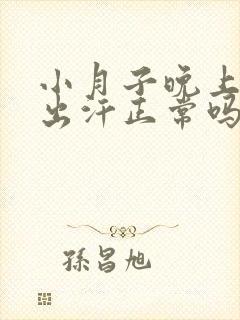 小月子晚上
出汗正常吗
孫昌旭